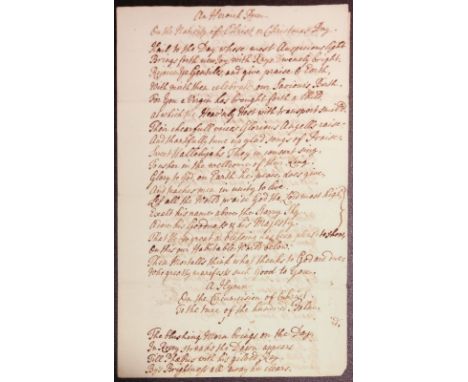 An Heroick Poem.
On the Nativity of Christ or Christmas Day.
Hail to the Day whose most Auspicious light
Brings forth new Joy with Rays Divinely bright.
Rejoyce ye Gentiles, and give praise o'er Earth,
With mirth then celebrate our Saviours Birth.
For You a Virgin has brought forth a Child
at which the Heavenly Host with transport smil'd
Their chearfull voices Glorious Angells raise
And thankfully tune up glad songs of Praise.
Sweet Hallelujahs They in consort sing
To usher in the wellcome of their King.
Glory to God, on Earth his peace does give
And teaches men in unity to live.
Let all the World praise God the Lord most high
Exalt his name above the Starry Sky
Adore his Goodness & his Majesty
That He so great a blessing has been pleas'd to show,
On this our Habitable World below.
Then Mortalls think what thanks to God are due
Who greatly manifests such Good to You.
A Hymn.
On the Circumcision of Christ
To the tune of the hundred Psalm.
The blushing Morn brings on the Day,
In Rosy the Dawn appears
Till Phœbus with his gilded Ray
By's Brightness all away he clears.